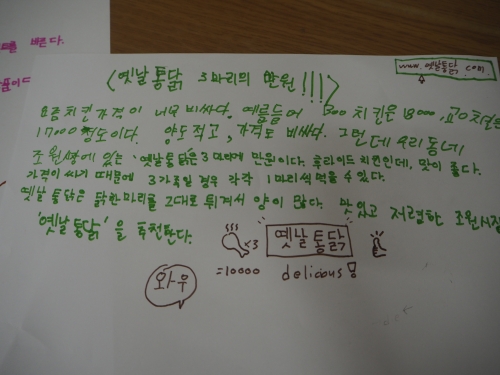 를 바른다.
www.옛날통닭.com
<옛날 통닭 3마리의 만원!!!>
요즘 치킨 가격이 너무 비싸다. 예를들어 치킨은 18000, 교촌치킨은
17000 정도이다. 양도 적고, 가격도 비싸다. 그런데 우리 동네
조원시장에 있는 '옛날통닭'은 3마리에 만원이다. 후라이드 치킨인데, 맛이 좋다.
가격이 싸기 때문에 3가족일 경우 각각 1마리씩 먹을 수 있다.
옛날 통닭은 닭한마리를 그대로 튀겨서 양이 많다. 맛있고 저렴한 조원시장
'옛날통닭'을 추천한다.
×3
옛날통닭
=10000 delicious!
와우